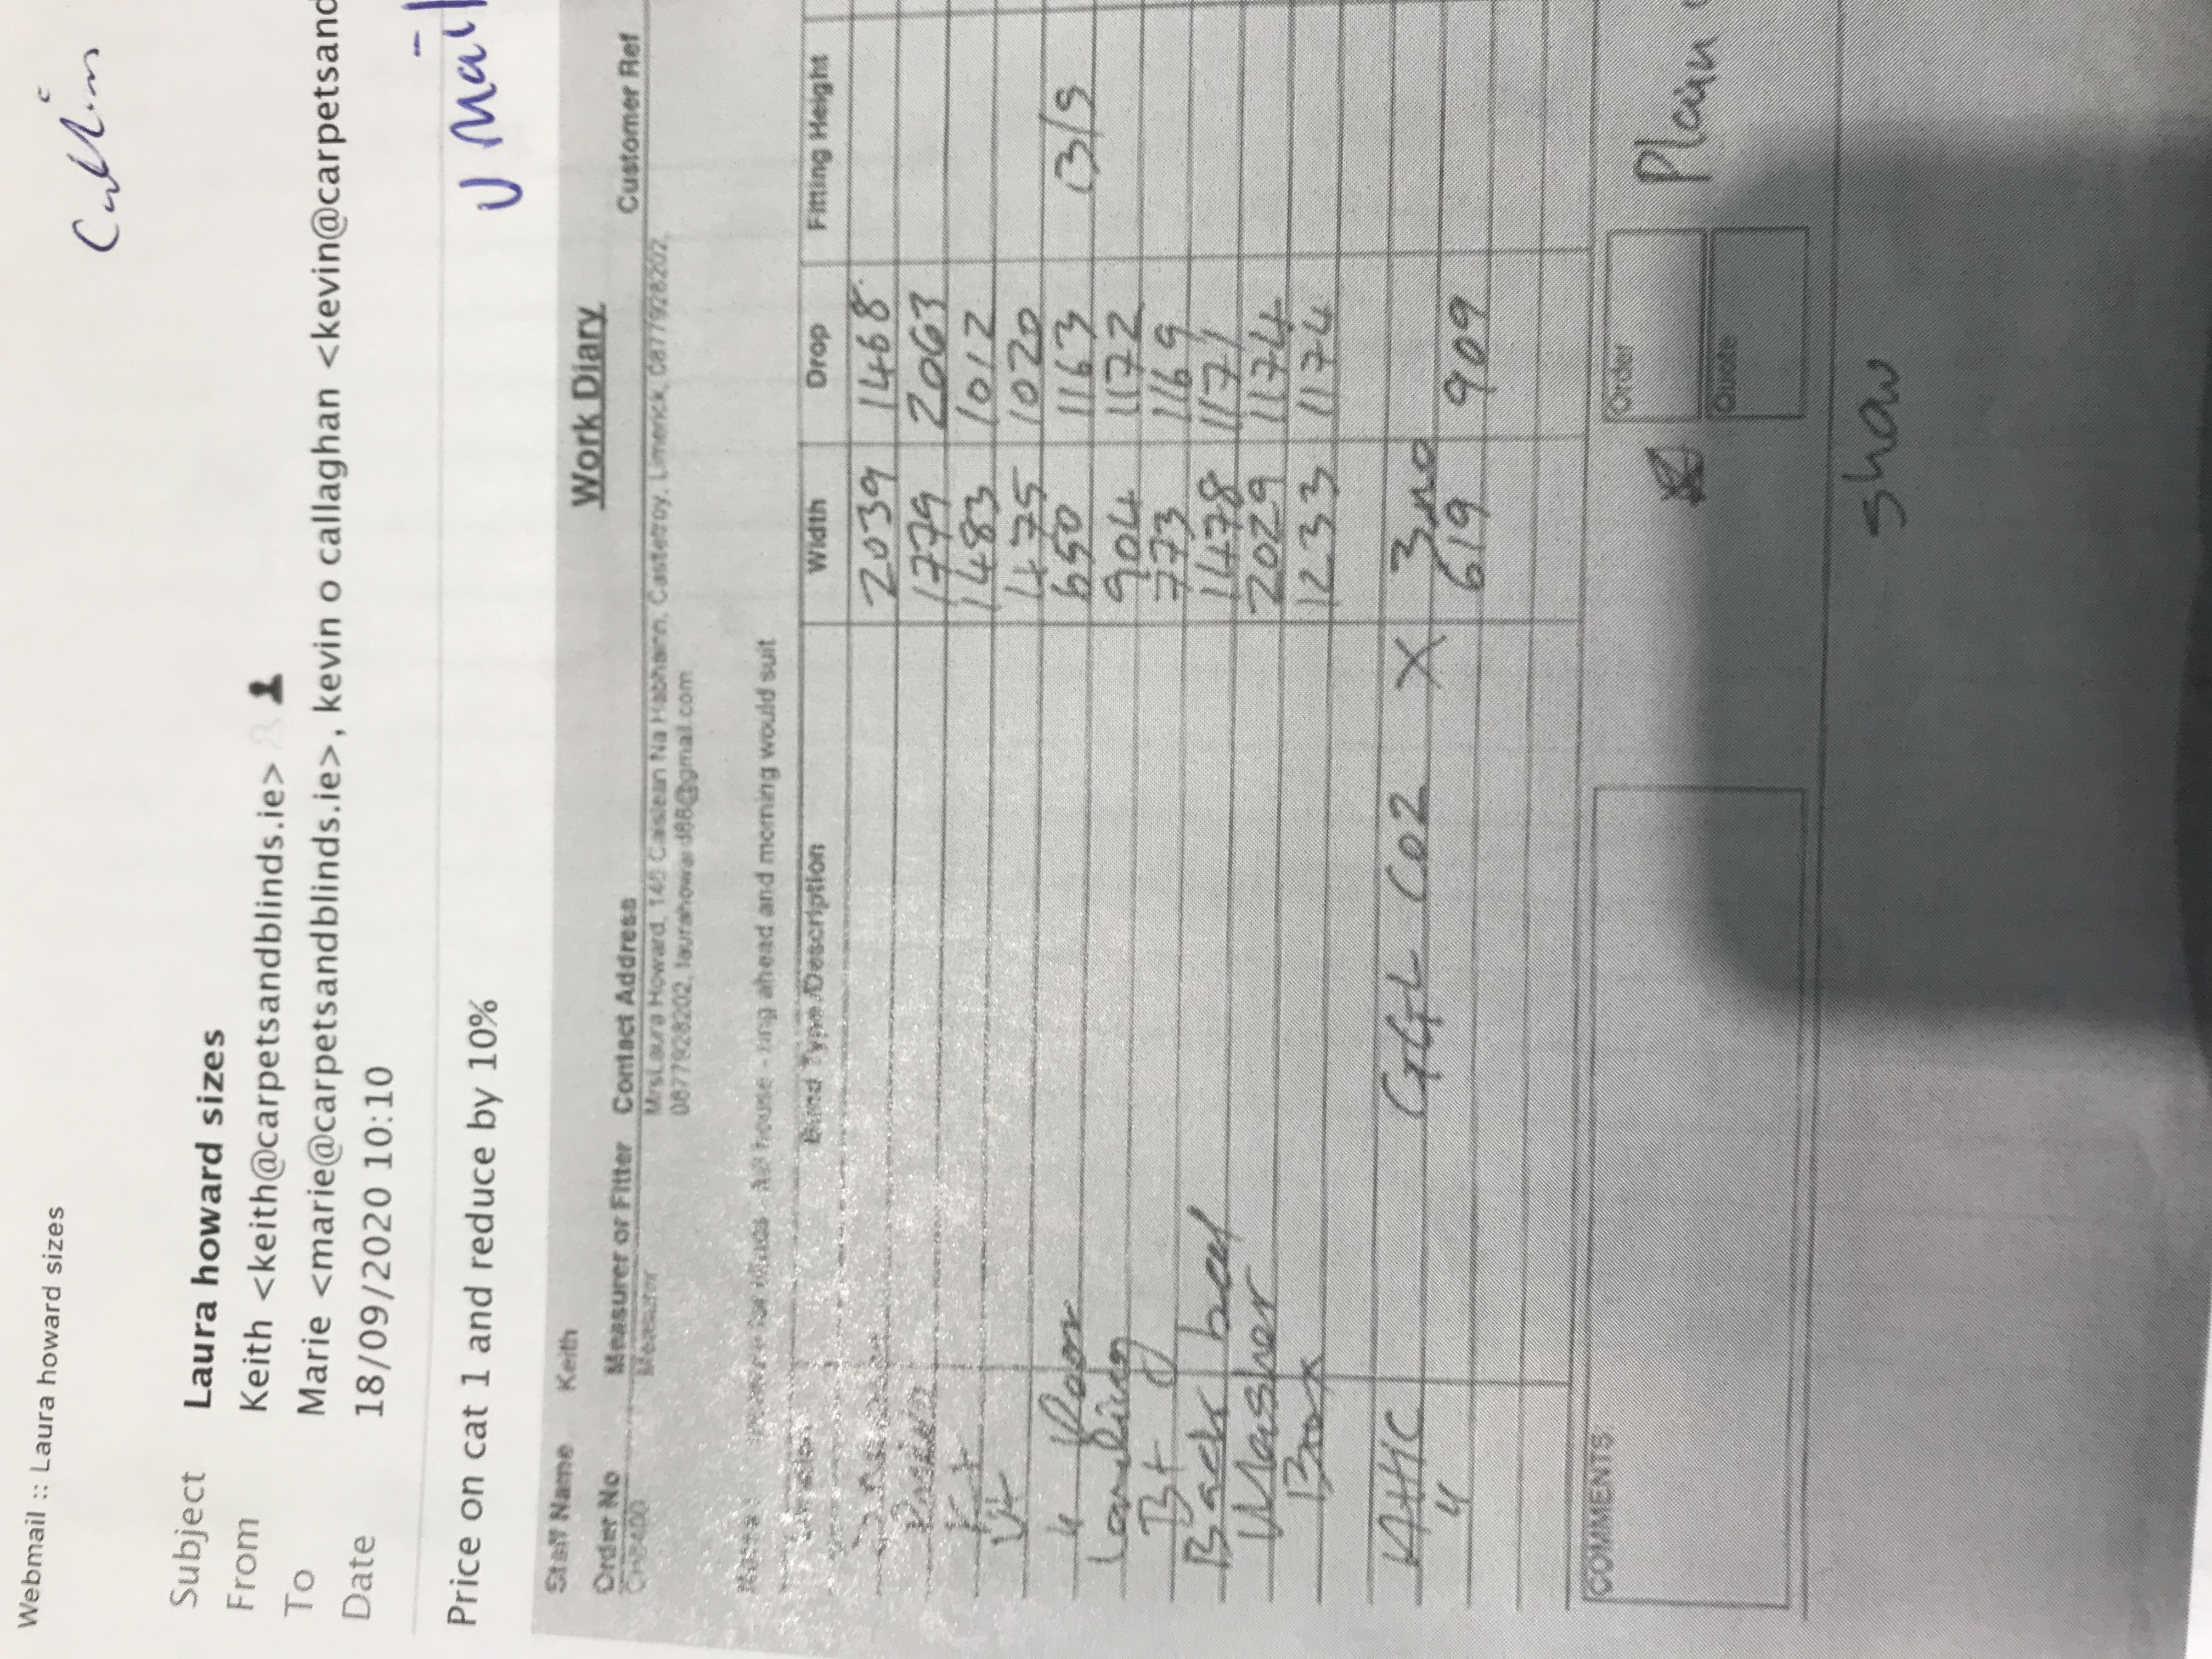 Webmail :: Laura howard sizes
Subject Laura howard sizes
From Keith <keith@carpetsandblinds.ie>
To Marie <marie@carpetsandblinds.ie>, kevin o callaghan <kevin@carpetsand
Date 18/09/2020 10:10
Price on cat 1 and reduce by 10%
Work Diary
Staff Name Keith
Order No Measurer or Fitter Contact Address Customer Ref
Measurer Mrs Laura Howard, 146 Caislean Na Habhann, Castletroy, Limerick, 0877928202,
0877928202, laurahoward88@gmail.com
house - ring ahead and morning would suit
Blind Type/Description Width Drop Fitting Height
2039 1468
1779 2063
Kit 1483 1012
Kit 1475 1020
" Door 650 1163 B/S
Landing 904 1172
Bt 773 1169
Back bed 1478 1171
Master 2029 1174
Box 1233 1174
Attic GGL C02 X 3no
" 619 909
COMMENTS: Order
Plain
Quote
show